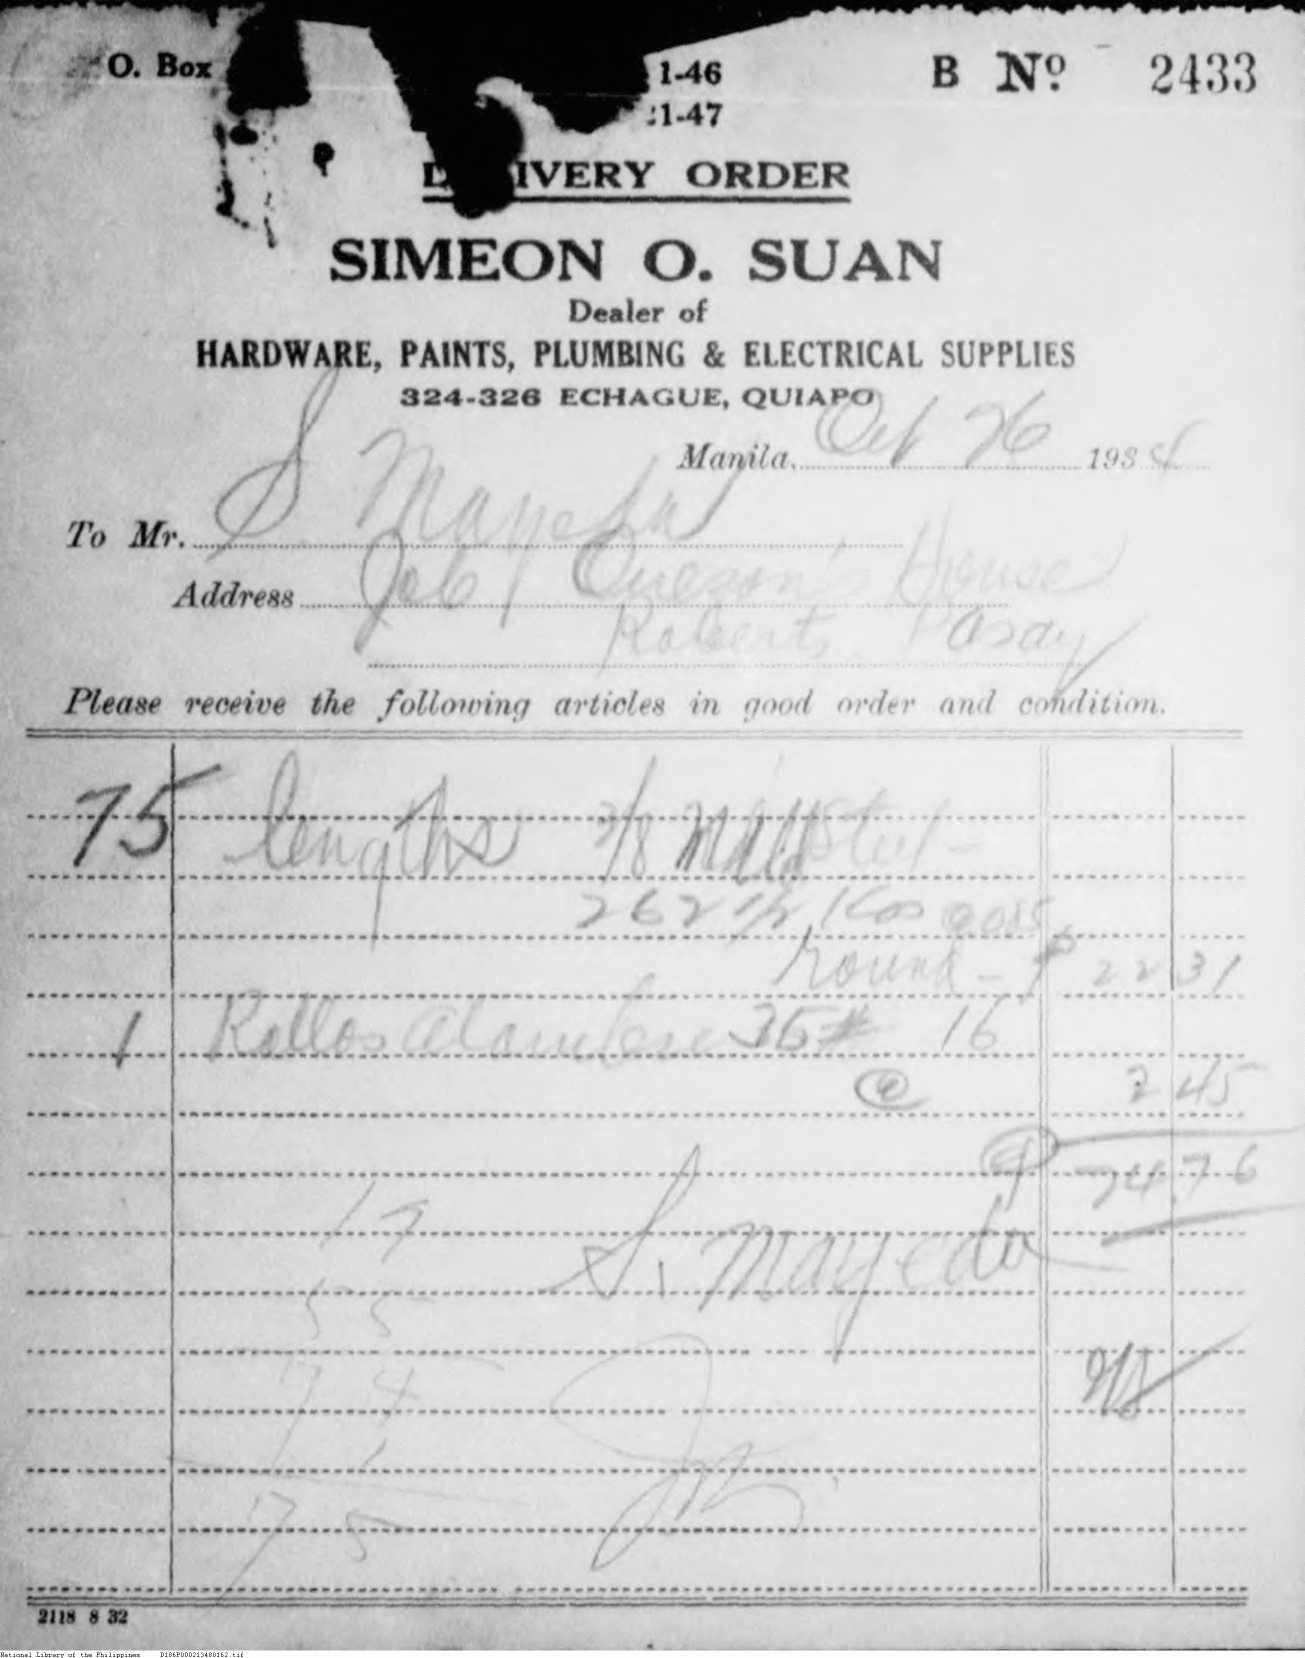 O. Box 1-46 B Nº 2433
1-47
IVERY ORDER
SIMEON O. SUAN
Dealer of
HARDWARE, PAINTS, PLUMBING & ELECTRICAL SUPPLIES
324-326 ECHAGUE, QUIAPO
Manila, Oct 26 1934
To Mr. S Mayeda
Address Job Quezon's House
Roberts Pasay
Please receive the following articles in good order and condition.
75 lengths 3/8 Mild Steel -
262 1/2 Kos @ 085
round - ₱ 22 31
1 Rollos Alambre 35# 16
@ 2 45
₱ 24.76
19
S. Mayeda
55
74
1
75
2118 8 32
National Library of the Philippines D186P000213480162.tif